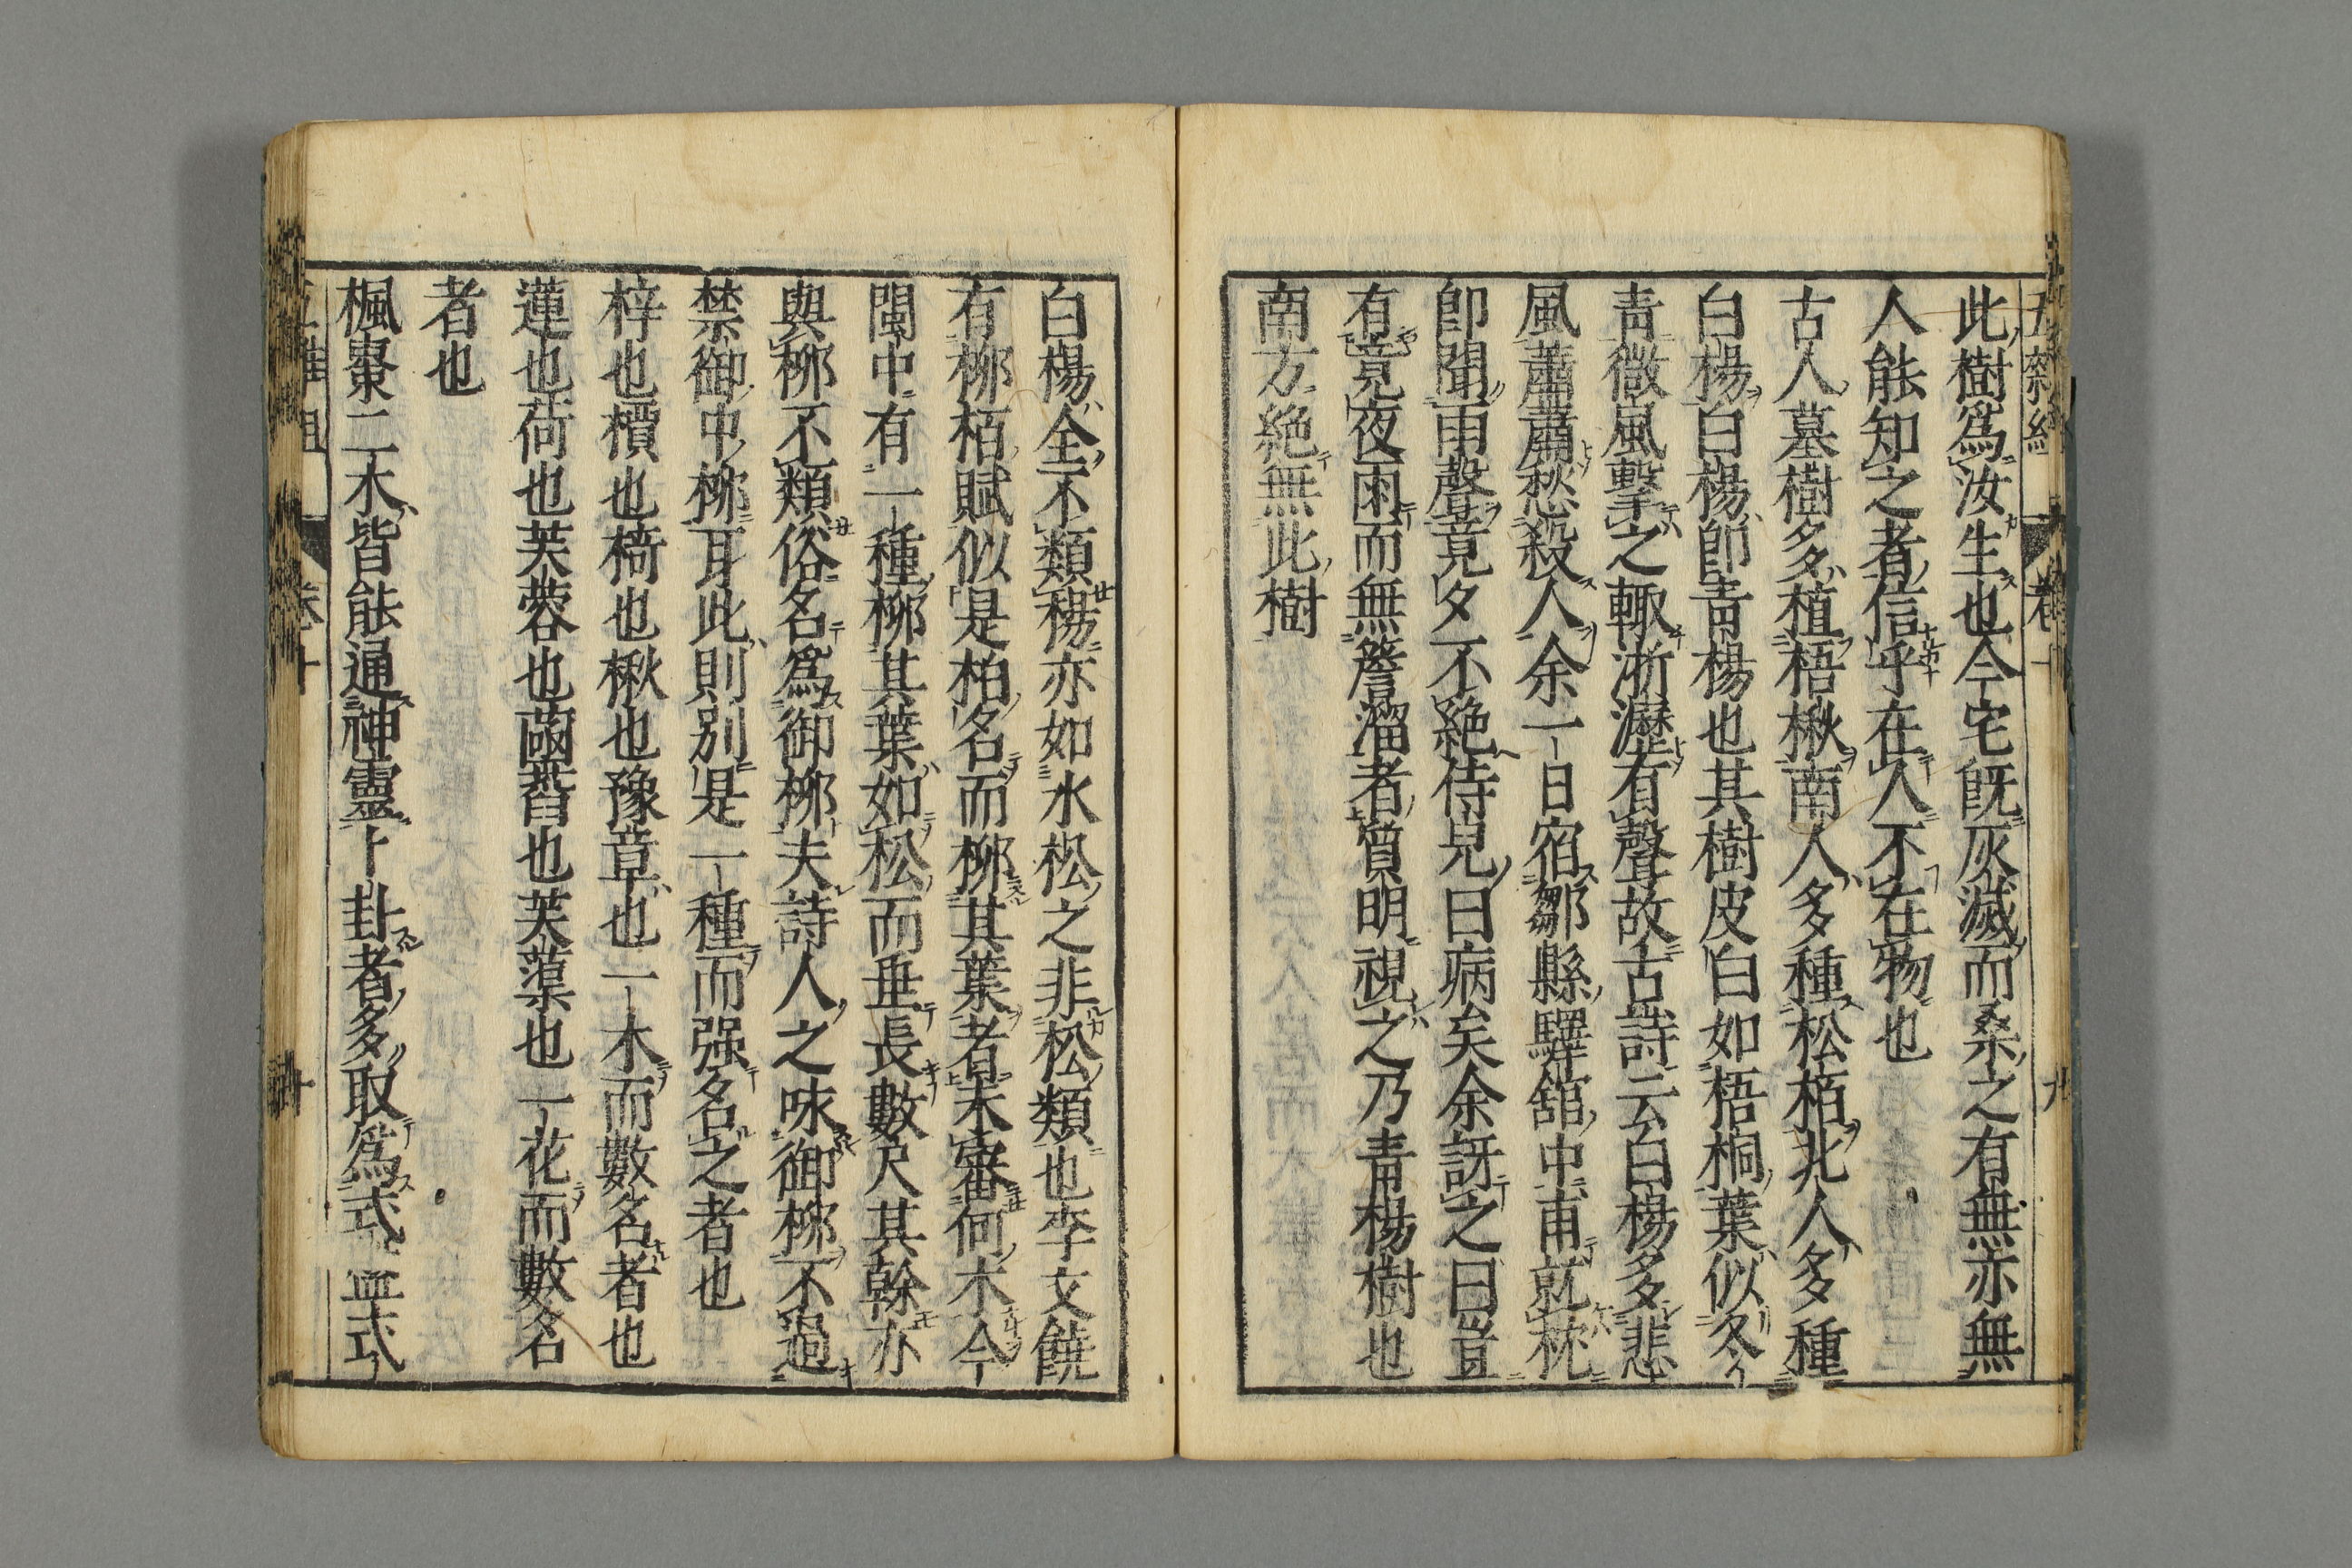 此樹爲汝生也今宅既灰滅而桑之有無亦無
人能知之者信乎在人不在物也
古人墓樹多植梧楸南人多種松栢北人多種
白楊白楊即青楊也其樹皮白如梧桐葉似冬
青微風擊之輙淅瀝有聲故古詩云白楊多悲
風蕭蕭愁殺人余一日宿鄒縣驛舘中甫就枕
即聞雨聲竟夕不絶侍兒曰病矣余訝之曰豈
有竟夜雨而無簷溜者質明視之乃青楊樹也
南方絶無此樹
白楊全不類楊亦如水松之非松類也李文饒
有栁栢賦似是柏名而栁其葉者未審何木今
閩中有一種栁其葉如松而垂長數尺其幹亦
與栁不類俗名爲御栁夫詩人之味御栁不過
禁御中栁耳此則別是一種而强名之者也
梓也檟也椅也楸也豫章也一木而數名者也
蓮也荷也芙蓉也菡萏也芙蕖也一花而數名
者也
楓棗二木皆能通神靈卜卦者多取爲式盤式
卷十